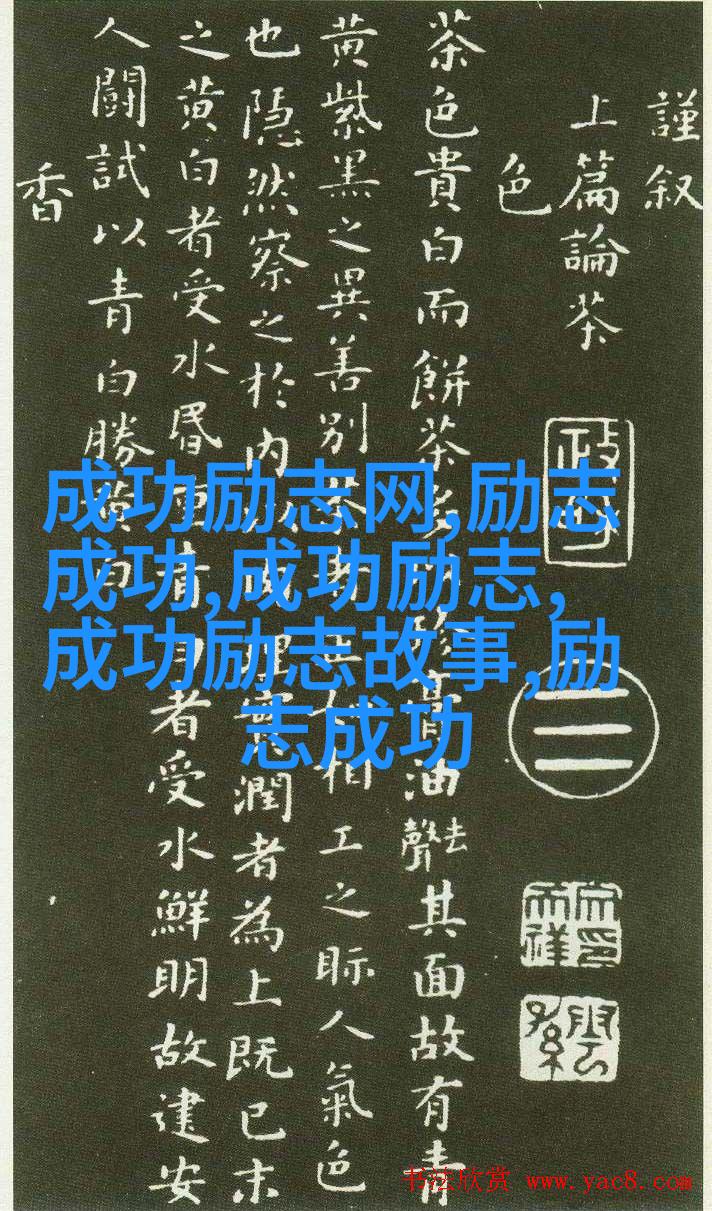 謹叙
上篇論茶
色
茶色貴白而餅茶多膏油去聲其面故有青
黄紫黑之異善别茶相工之眎人氣色
也隠然察之於内理實潤者為上既已末
之黄白者受水昬重青白者受水鮮明故建安
人闘試以青白勝黄白
香
二
成功励志网,励志
成功,成功励志,
成功励志故事,励
志成功
书法欣赏 www.yac8.com